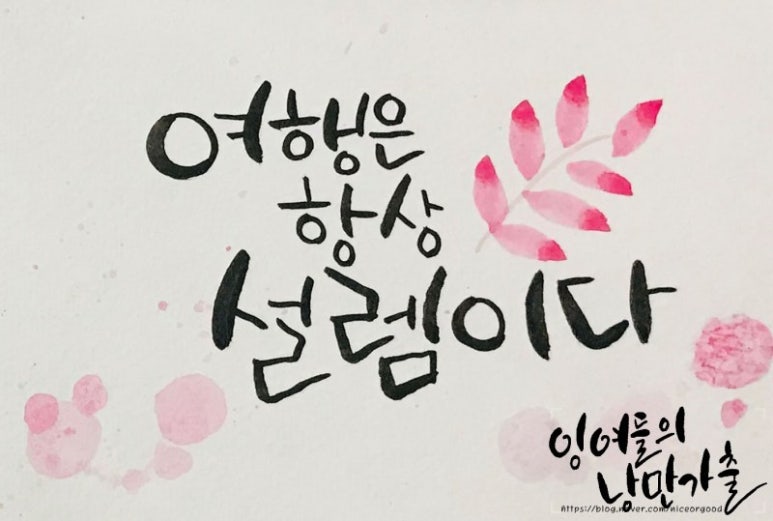 여행은
항상
설렘이다
잉여들의
낭만가출
https://blog.naver.com/niceorgood